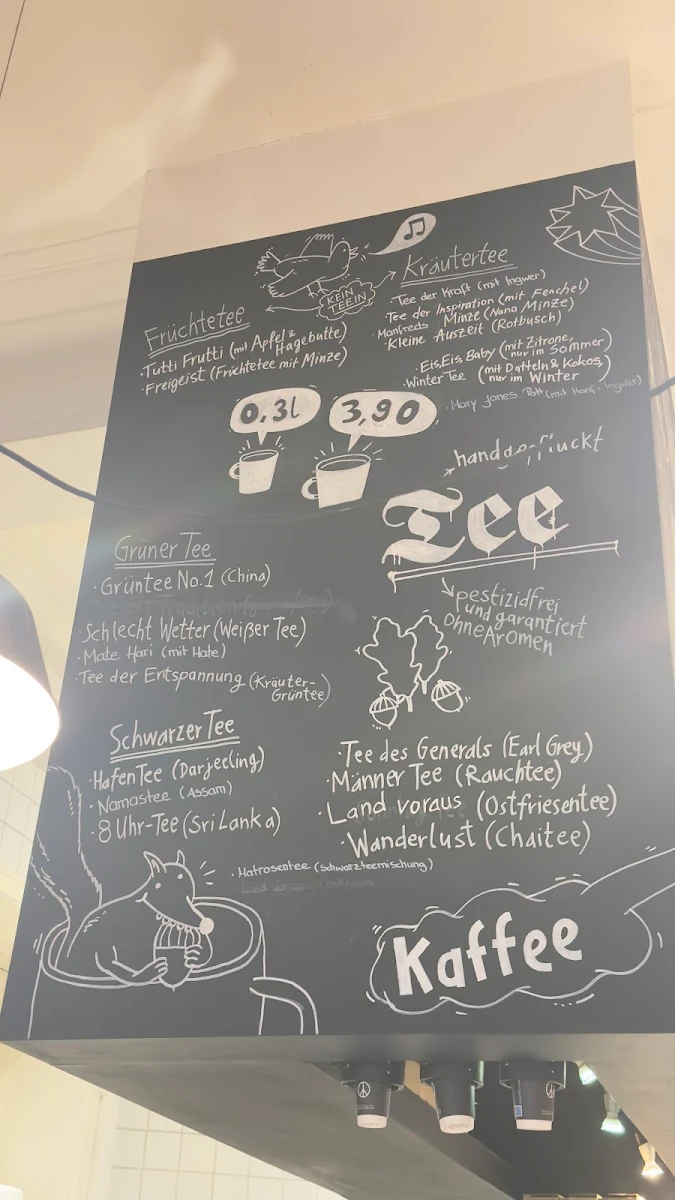 KEIN
TEEIN
Kräutertee
Tee der Kraft (mit Ingwer)
Tee der Inspiration (mit Fenchel)
Manfreds Minze (Nana Minze)
Kleine Auszeit (Rotbusch)
Eis, Eis, Baby (mit Zitrone,
nur im Sommer)
Winter Tee (mit Datteln & Kokos,
nur im Winter)
Mary Jones (mit Hanf + Ingwer)
Früchtetee
Tutti Frutti (mit Apfel &
Hagebutte)
Freigeist (Früchtetee mit Minze)
0,3l
3,90
handgepflückt
Tee
pestizidfrei
und garantiert
ohne Aromen
Grüner Tee
Grüntee No.1 (China)
Schlecht Wetter (Weißer Tee)
Mate Hari (mit Mate)
Tee der Entspannung (Kräuter-
Grüntee)
Schwarzer Tee
Hafen Tee (Darjeeling)
Namastee (Assam)
8 Uhr-Tee (Sri Lanka)
Matrosentee (Schwarzteemischung)
Tee des Generals (Earl Grey)
Männer Tee (Rauchtee)
Land voraus (Ostfriesentee)
Wanderlust (Chaitee)
Kaffee